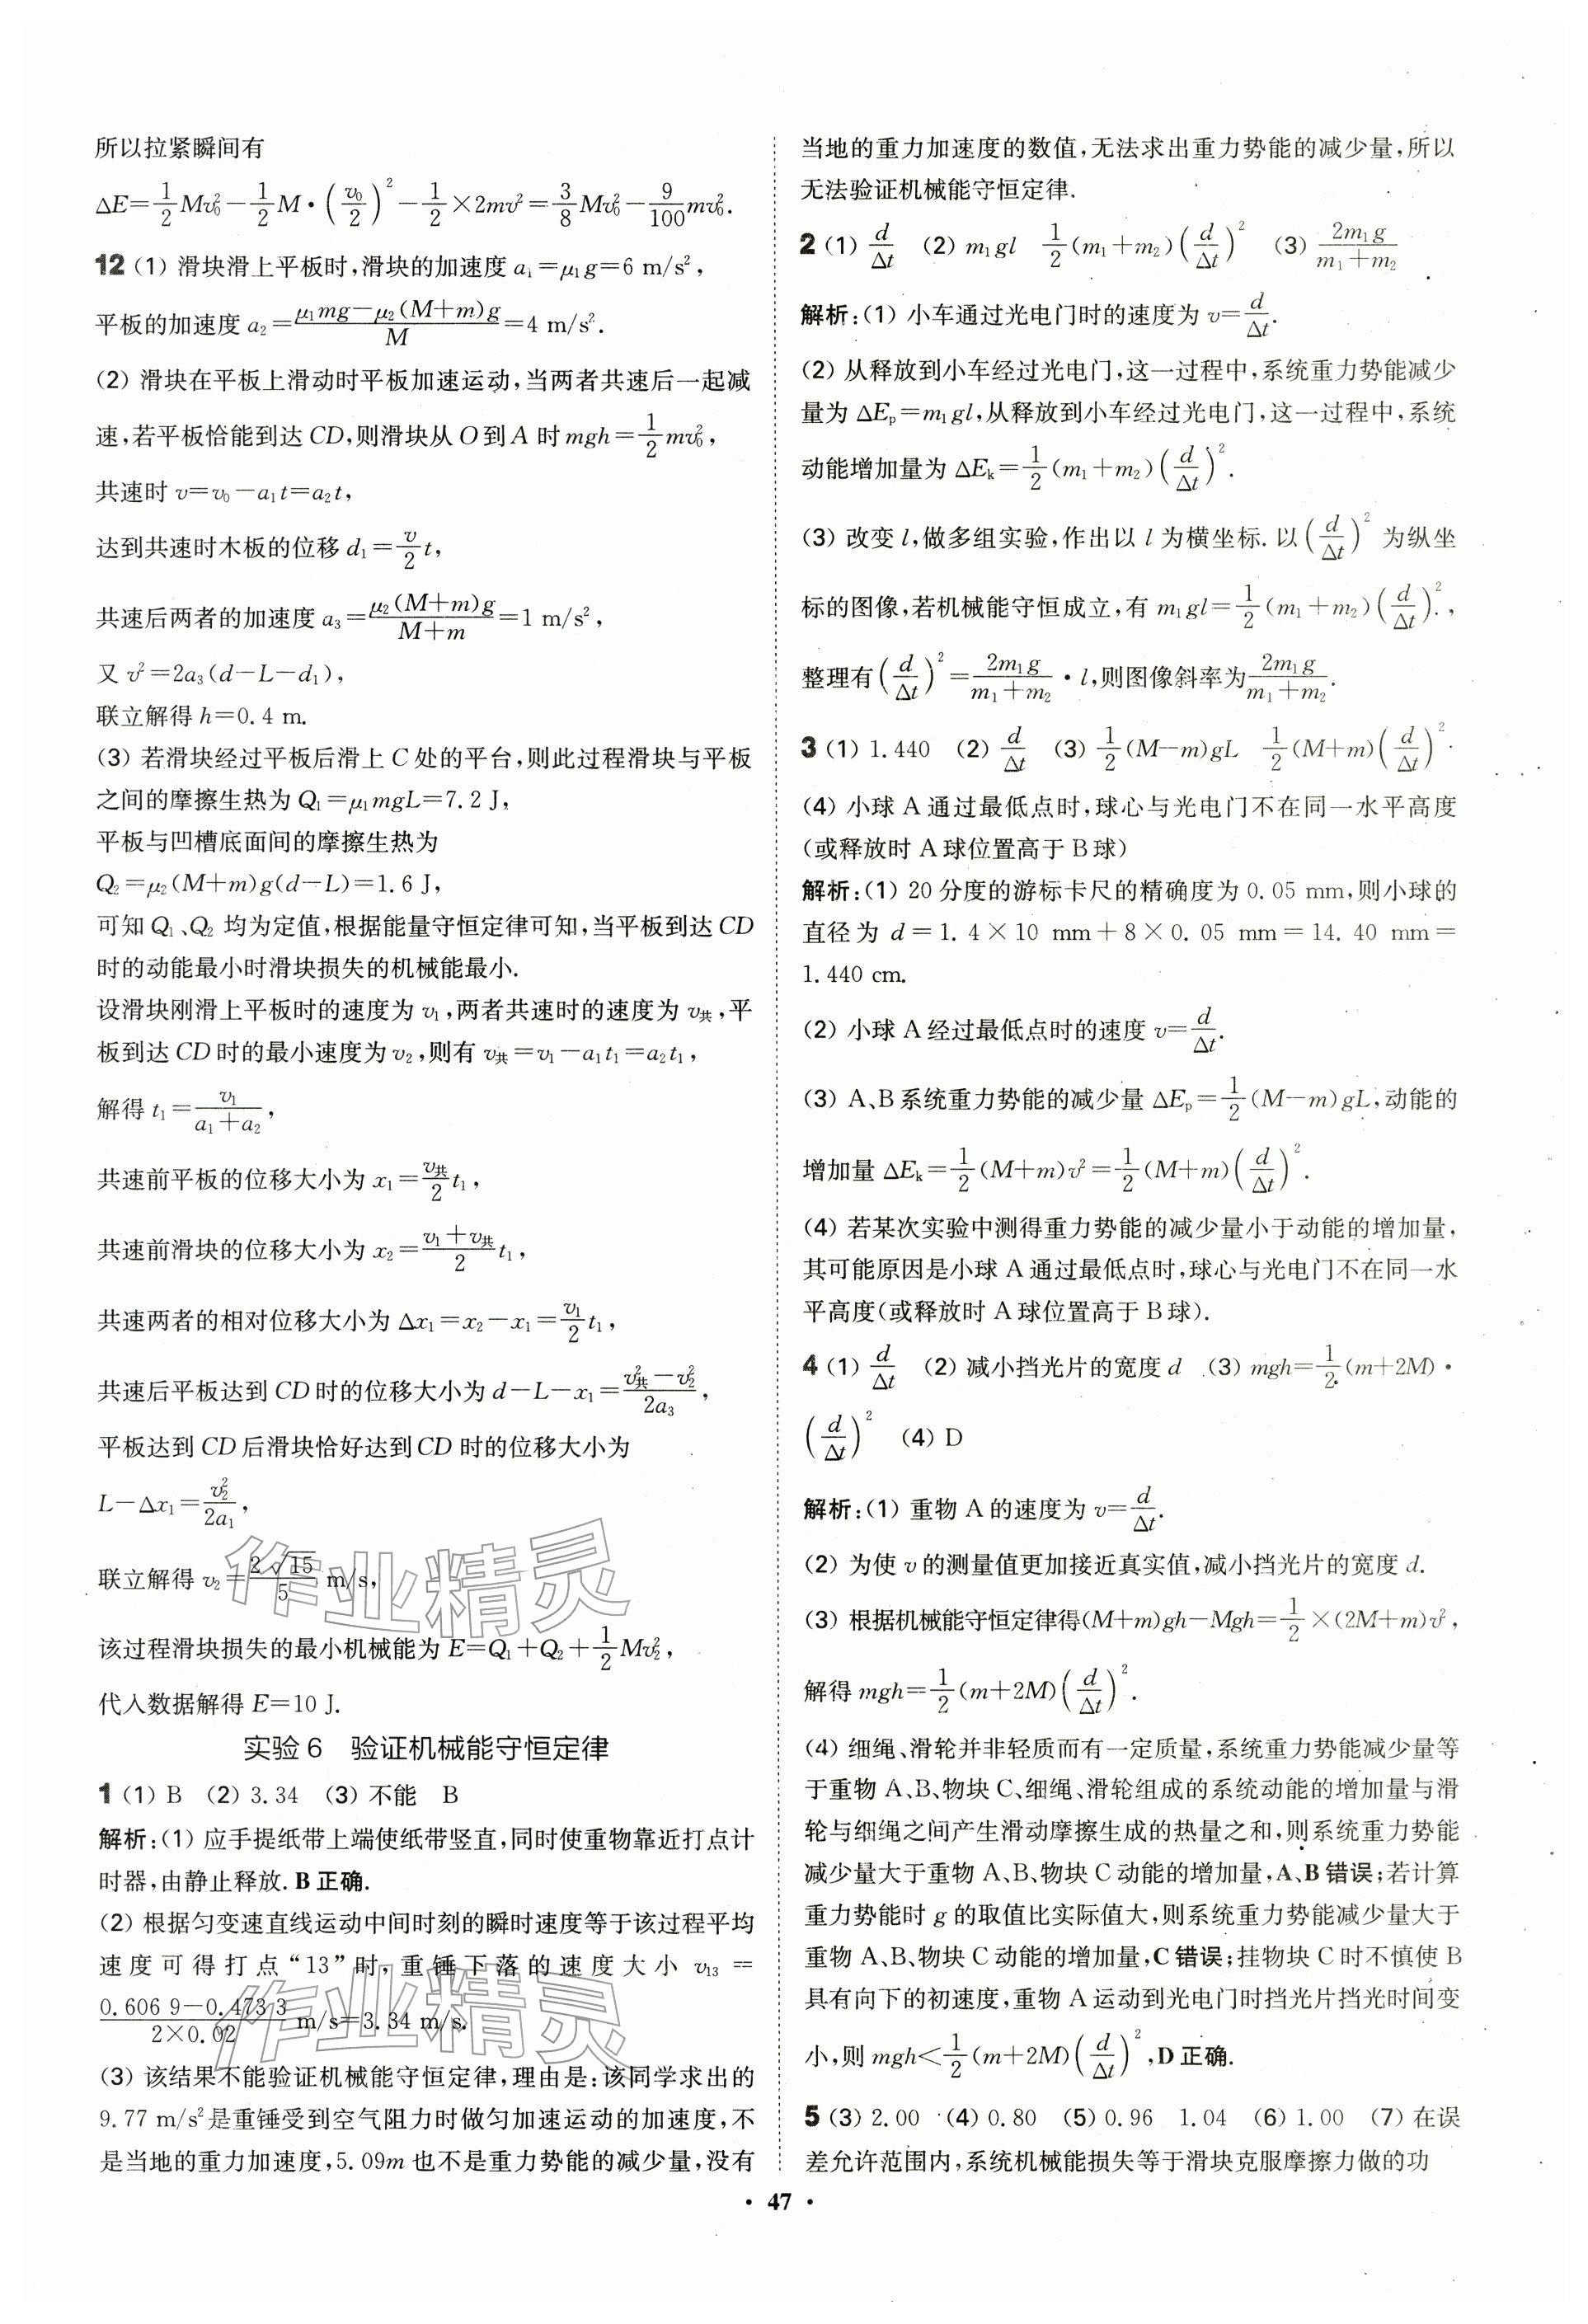 所以拉紧瞬间有
ΔE=1/2 Mv₀²−1/2 M·(v₀/2)²−1/2×2mv²=3/8 Mv₀²−9/100 mv₀².
12 (1) 滑块滑上平板时,滑块的加速度 a₁=μ₁g=6 m/s²,
平板的加速度 a₂=(μ₁mg−μ₂(M+m)g)/M=4 m/s².
(2) 滑块在平板上滑动时平板加速运动,当两者共速后一起减
速,若平板恰能到达 CD,则滑块从 O 到 A 时 mgh=1/2 mv₀²,
共速时 v=v₀−a₁t=a₂t,
达到共速时木板的位移 d₁=v/2 t,
共速后两者的加速度 a₃=μ₂(M+m)g/(M+m)=1 m/s²,
又 v²=2a₃(d−L−d₁),
联立解得 h=0.4 m.
(3) 若滑块经过平板后滑上 C 处的平台,则此过程滑块与平板
之间的摩擦生热为 Q₁=μ₁mgL=7.2 J,
平板与凹槽底面间的摩擦生热为
Q₂=μ₂(M+m)g(d−L)=1.6 J,
可知 Q₁、Q₂ 均为定值,根据能量守恒定律可知,当平板到达 CD
时的动能最小时滑块损失的机械能最小.
设滑块刚滑上平板时的速度为 v₁,两者共速时的速度为 v共,平
板到达 CD 时的最小速度为 v₂,则有 v共=v₁−a₁t₁=a₂t₁,
解得 t₁=v₁/(a₁+a₂),
共速前平板的位移大小为 x₁=v共/2 t₁,
共速前滑块的位移大小为 x₂=(v₁+v共)/2 t₁,
共速两者的相对位移大小为 Δx₁=x₂−x₁=v₁/2 t₁,
共速后平板达到 CD 时的位移大小为 d−L−x₁=(v共²−v₂²)/2a₃,
平板达到 CD 后滑块恰好达到 CD 时的位移大小为
L−Δx₁=v₂²/2a₁,
联立解得 v₂=2√15/5 m/s,
该过程滑块损失的最小机械能为 E=Q₁+Q₂+1/2 Mv₂²,
代入数据解得 E=10 J.
实验 6 验证机械能守恒定律
1 (1) B (2) 3.34 (3) 不能 B
解析:(1) 应手提纸带上端使纸带竖直,同时使重物靠近打点计
时器,由静止释放.B 正确.
(2) 根据匀变速直线运动中间时刻的瞬时速度等于该过程平均
速度可得打点“13”时,重锤下落的速度大小 v₁₃=
(0.606 9−0.473 3)/(2×0.02) m/s=3.34 m/s.
(3) 该结果不能验证机械能守恒定律,理由是:该同学求出的
9.77 m/s²是重锤受到空气阻力时做匀加速运动的加速度,不
是当地的重力加速度,5.09m 也不是重力势能的减少量,没有
当地的重力加速度的数值,无法求出重力势能的减少量,所以
无法验证机械能守恒定律.
2 (1) d/Δt (2) m₁gl 1/2(m₁+m₂)(d/Δt)² (3) 2m₁g/(m₁+m₂)
解析:(1) 小车通过光电门时的速度为 v=d/Δt.
(2) 从释放到小车经过光电门,这一过程中,系统重力势能减少
量为 ΔEₚ=m₁gl,从释放到小车经过光电门,这一过程中,系统
动能增加量为 ΔEₖ=1/2(m₁+m₂)(d/Δt)².
(3) 改变 l,做多组实验,作出以 l 为横坐标.以(d/Δt)² 为纵坐
标的图像,若机械能守恒成立,有 m₁gl=1/2(m₁+m₂)(d/Δt)²,
整理有(d/Δt)²=2m₁g/(m₁+m₂)·l,则图像斜率为2m₁g/(m₁+m₂).
3 (1) 1.440 (2) d/Δt (3) 1/2(M−m)gL 1/2(M+m)(d/Δt)²
(4) 小球 A 通过最低点时,球心与光电门不在同一水平高度
(或释放时 A 球位置高于 B 球)
解析:(1) 20 分度的游标卡尺的精确度为 0.05 mm,则小球的
直径为 d=1.4×10 mm+8×0.05 mm=14.40 mm=
1.440 cm.
(2) 小球 A 经过最低点时的速度 v=d/Δt.
(3) A、B 系统重力势能的减少量 ΔEₚ=1/2(M−m)gL,动能的
增加量 ΔEₖ=1/2(M+m)v²=1/2(M+m)(d/Δt)².
(4) 若某次实验中测得重力势能的减少量小于动能的增加量,
其可能原因是小球 A 通过最低点时,球心与光电门不在同一水
平高度(或释放时 A 球位置高于 B 球).
4 (1) d/Δt (2) 减小挡光片的宽度 d (3) mgh=1/2(m+2M)·
(d/Δt)² (4) D
解析:(1) 重物 A 的速度为 v=d/Δt.
(2) 为使 v 的测量值更加接近真实值,减小挡光片的宽度 d.
(3) 根据机械能守恒定律得(M+m)gh−Mgh=1/2×(2M+m)v²,
解得 mgh=1/2(m+2M)(d/Δt)².
(4) 细绳、滑轮并非轻质而有一定质量,系统重力势能减少量等
于重物 A、B、物块 C、细绳、滑轮组成的系统动能的增加量与滑
轮与细绳之间产生滑动摩擦生成的热量之和,则系统重力势能
减少量大于重物 A、B、物块 C 动能的增加量,A、B 错误;若计算
重力势能时 g 的取值比实际值大,则系统重力势能减少量大于
重物 A、B、物块 C 动能的增加量,C 错误;挂物块 C 时不慎使 B
具有向下的初速度,重物 A 运动到光电门时挡光片挡光时间变
小,则 mgh<1/2(m+2M)(d/Δt)²,D 正确.
5 (3) 2.00 (4) 0.80 (5) 0.96 1.04 (6) 1.00 (7) 在误
差允许范围内,系统机械能损失等于滑块克服摩擦力做的功
· 47 ·
作业精灵
作业精灵